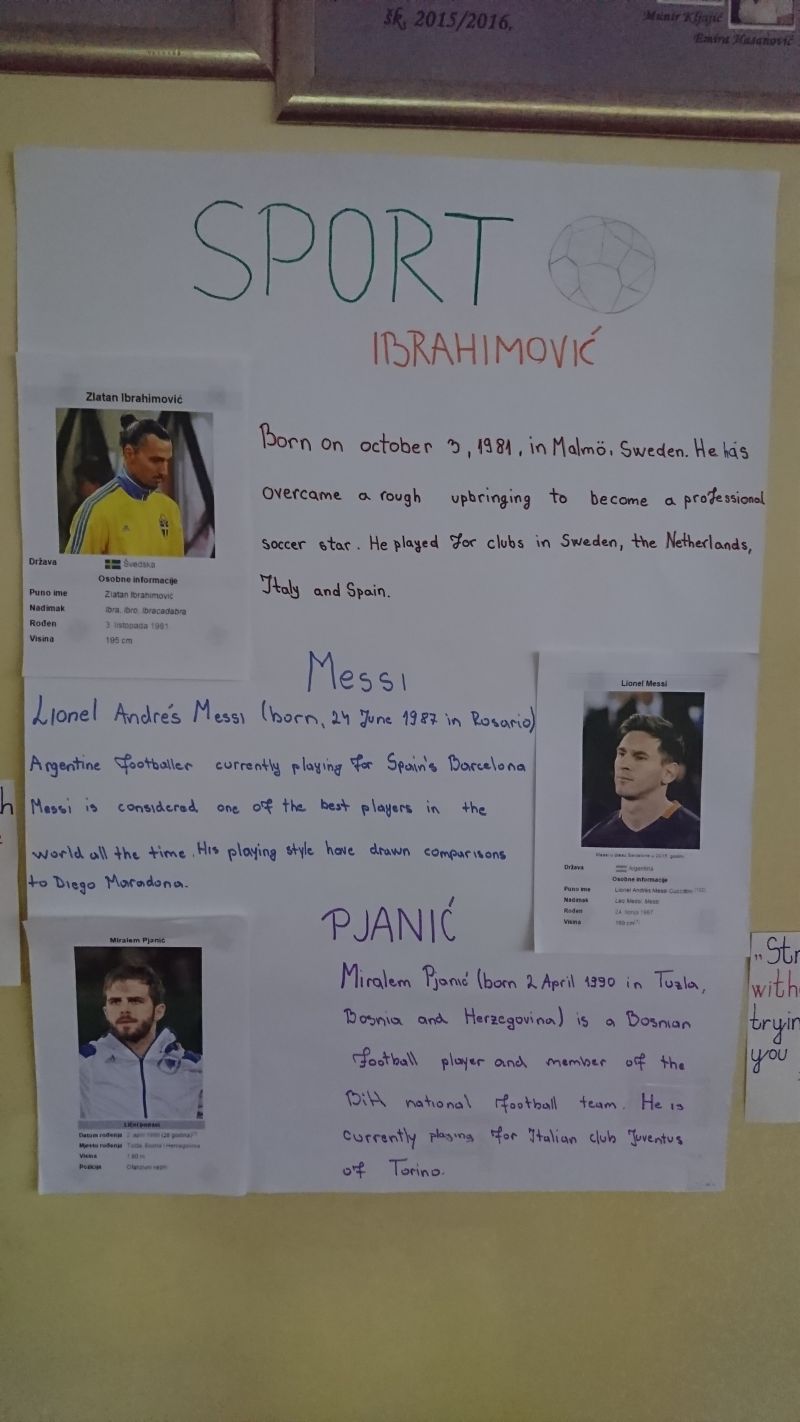 šk, 2015/2016,
Munir Kljajić
Emira Hasanović
SPORT
IBRAHIMOVIĆ
Zlatan Ibrahimović
Država Švedska
Osobne informacije
Puno ime Zlatan Ibrahimović
Nadimak Ibra, Ibro, Ibracadabra
Rođen 3. listopada 1981.
Visina 195 cm
Born on october 3, 1981, in Malmö, Sweden. He has
overcame a rough upbringing to become a professional
soccer star. He played for clubs in Sweden, the Netherlands,
Italy and Spain.
Messi
Lionel Andrés Messi (born, 24 June 1987 in Rosario)
Argentine footballer currently playing for Spain's Barcelona
Messi is considered one of the best players in the
world all the time. His playing style have drawn comparisons
to Diego Maradona.
Lionel Messi
Država Argentina
Osobne informacije
Puno ime Lionel Andrés Messi Cuccittini
Nadimak Leo Messi, Messi
Rođen 24. lipnja 1987.
Visina 169 cm
PJANIĆ
Miralem Pjanić
Datum rođenja 2. april 1990 (26 godina)
Mjesto rođenja Tuzla, Bosna i Hercegovina
Visina 1.80 m
Pozicija Ofanzivni vezni
Miralem Pjanić (born 2 April 1990 in Tuzla,
Bosnia and Herzegovina) is a Bosnian
football player and member of the
BiH national football team. He is
currently playing for Italian club Juventus
of Torino.
h
„Str
with
tryin
you